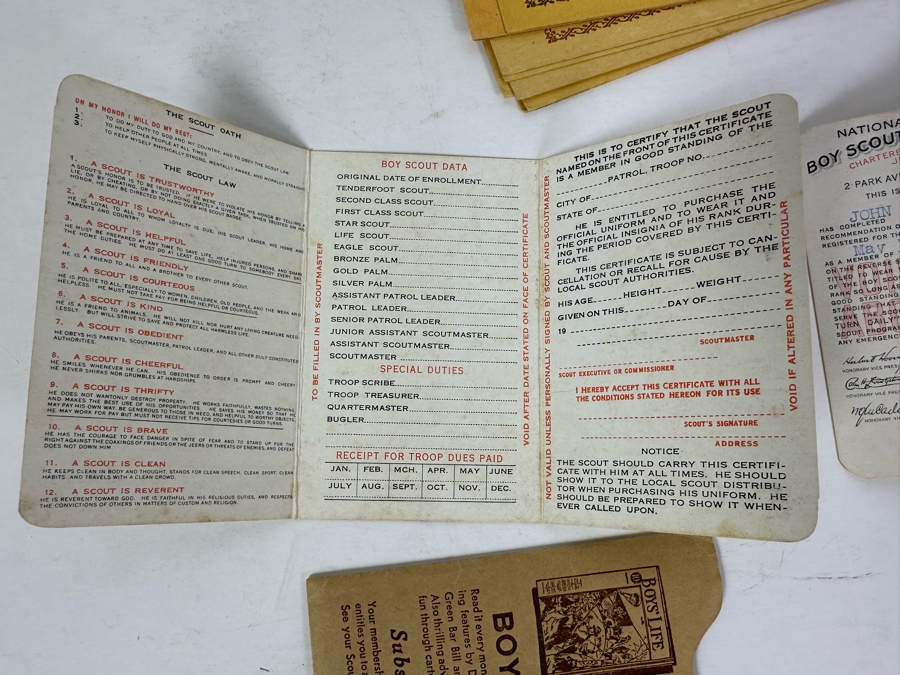 THE SCOUT OATH
ON MY HONOR I WILL DO MY BEST:
1. TO DO MY DUTY TO GOD AND MY COUNTRY, AND TO OBEY THE SCOUT LAW
2. TO HELP OTHER PEOPLE AT ALL TIMES
3. TO KEEP MYSELF PHYSICALLY STRONG, MENTALLY AWAKE, AND MORALLY STRAIGHT
THE SCOUT LAW
1. A SCOUT IS TRUSTWORTHY
A SCOUT'S HONOR IS TO BE TRUSTED. IF HE WERE TO VIOLATE HIS HONOR BY TELLING A
LIE, OR BY CHEATING, OR BY NOT DOING EXACTLY A GIVEN TASK, WHEN TRUSTED ON HIS
HONOR, HE MAY BE DIRECTED TO HAND OVER HIS SCOUT BADGE.
2. A SCOUT IS LOYAL
HE IS LOYAL TO ALL TO WHOM LOYALTY IS DUE, HIS SCOUT LEADER, HIS HOME AND
PARENTS AND COUNTRY.
3. A SCOUT IS HELPFUL
HE MUST BE PREPARED AT ANY TIME TO SAVE LIFE, HELP INJURED PERSONS, AND SHARE
THE HOME DUTIES. HE MUST DO AT LEAST ONE GOOD TURN TO SOMEBODY EVERY DAY
4. A SCOUT IS FRIENDLY
HE IS A FRIEND TO ALL AND A BROTHER TO EVERY OTHER SCOUT.
5. A SCOUT IS COURTEOUS
HE IS POLITE TO ALL, ESPECIALLY TO WOMEN, CHILDREN, OLD PEOPLE, AND THE WEAK AND
HELPLESS. HE MUST NOT TAKE PAY FOR BEING HELPFUL OR COURTEOUS.
6. A SCOUT IS KIND
HE IS A FRIEND TO ANIMALS. HE WILL NOT KILL NOR HURT ANY LIVING CREATURE NEED-
LESSLY. BUT WILL STRIVE TO SAVE AND PROTECT ALL HARMLESS LIFE.
7. A SCOUT IS OBEDIENT
HE OBEYS HIS PARENTS, SCOUTMASTER, PATROL LEADER, AND ALL OTHER DULY CONSTITUTED
AUTHORITIES.
8. A SCOUT IS CHEERFUL
HE SMILES WHENEVER HE CAN. HIS OBEDIENCE TO ORDER IS PROMPT AND CHEERY
HE NEVER SHIRKS NOR GRUMBLES AT HARDSHIPS
9. A SCOUT IS THRIFTY
HE DOES NOT WANTONLY DESTROY PROPERTY. HE WORKS FAITHFULLY, WASTES NOTHING,
AND MAKES THE BEST USE OF HIS OPPORTUNITIES. HE SAVES HIS MONEY SO THAT HE
MAY PAY HIS OWN WAY, BE GENEROUS TO THOSE IN NEED, AND HELPFUL TO WORTHY OBJECTS.
HE MAY WORK FOR PAY BUT MUST NOT RECEIVE TIPS FOR COURTESIES OR GOOD TURNS.
10. A SCOUT IS BRAVE
HE HAS THE COURAGE TO FACE DANGER IN SPITE OF FEAR AND TO STAND UP FOR THE
RIGHT AGAINST THE COAXINGS OF FRIENDS OR THE JEERS OR THREATS OF ENEMIES, AND DEFEAT
DOES NOT DOWN HIM.
11. A SCOUT IS CLEAN
HE KEEPS CLEAN IN BODY AND THOUGHT, STANDS FOR CLEAN SPEECH, CLEAN SPORT, CLEAN
HABITS, AND TRAVELS WITH A CLEAN CROWD.
12. A SCOUT IS REVERENT
HE IS REVERENT TOWARD GOD. HE IS FAITHFUL IN HIS RELIGIOUS DUTIES, AND RESPECTS
THE CONVICTIONS OF OTHERS IN MATTERS OF CUSTOM AND RELIGION.
TO BE FILLED IN BY SCOUTMASTER
BOY SCOUT DATA
ORIGINAL DATE OF ENROLLMENT
TENDERFOOT SCOUT
SECOND CLASS SCOUT
FIRST CLASS SCOUT
STAR SCOUT
LIFE SCOUT
EAGLE SCOUT
BRONZE PALM
GOLD PALM
SILVER PALM
ASSISTANT PATROL LEADER
PATROL LEADER
SENIOR PATROL LEADER
JUNIOR ASSISTANT SCOUTMASTER
ASSISTANT SCOUTMASTER
SCOUTMASTER
SPECIAL DUTIES
TROOP SCRIBE
TROOP TREASURER
QUARTERMASTER
BUGLER
RECEIPT FOR TROOP DUES PAID
JAN. FEB. MCH. APR. MAY JUNE
JULY AUG. SEPT. OCT. NOV. DEC.
VOID AFTER DATE STATED ON FACE OF CERTIFICATE
NOT VALID UNLESS PERSONALLY SIGNED BY SCOUT AND SCOUTMASTER
THIS IS TO CERTIFY THAT THE SCOUT
NAMED ON THE FRONT OF THIS CERTIFICATE
IS A MEMBER IN GOOD STANDING OF THE
PATROL, TROOP NO.
CITY OF
STATE OF
HE IS ENTITLED TO PURCHASE THE
OFFICIAL UNIFORM AND TO WEAR IT AND
THE OFFICIAL INSIGNIA OF HIS RANK DUR-
ING THE PERIOD COVERED BY THIS CERTI-
FICATE.
THIS CERTIFICATE IS SUBJECT TO CAN-
CELLATION OR RECALL FOR CAUSE BY THE
LOCAL SCOUT AUTHORITIES.
HIS AGE HEIGHT WEIGHT
GIVEN ON THIS DAY OF
19
SCOUTMASTER
SCOUT EXECUTIVE OR COMMISSIONER
I HEREBY ACCEPT THIS CERTIFICATE WITH ALL
THE CONDITIONS STATED HEREON FOR ITS USE
SCOUT'S SIGNATURE
ADDRESS
NOTICE
THE SCOUT SHOULD CARRY THIS CERTIFI-
CATE WITH HIM AT ALL TIMES. HE SHOULD
SHOW IT TO THE LOCAL SCOUT DISTRIBU-
TOR WHEN PURCHASING HIS UNIFORM. HE
SHOULD BE PREPARED TO SHOW IT WHEN-
EVER CALLED UPON.
VOID IF ALTERED IN ANY PARTICULAR
NATIONA
BOY SCOUT
CHARTERE
2 PARK AV
THIS IS
JOHN
HAS COMPLETED
RECOMMENDATION O
REGISTERED FOR TH
May
AS A MEMBER OF
ON THE REVERSE S
TITLED TO WEAR T
OF THE BOY SCOU
RANK SO LONG AS
GOOD STANDING
STANDING THAT
SERVE THE SCOU
TURN DAILY"
SCOUT PROGRAM
ANY EMERGENCY
Herbert Hoov
HONORARY VICE PRES
HONORARY VICE PRES
HONORARY VI
BOYS' LIFE
BOY
Read it every mon
ing features by D
Green Bar Bill a
Also thrilling adv
fun through cart
Subs
Your membersh
entitles you to a
See your Scou